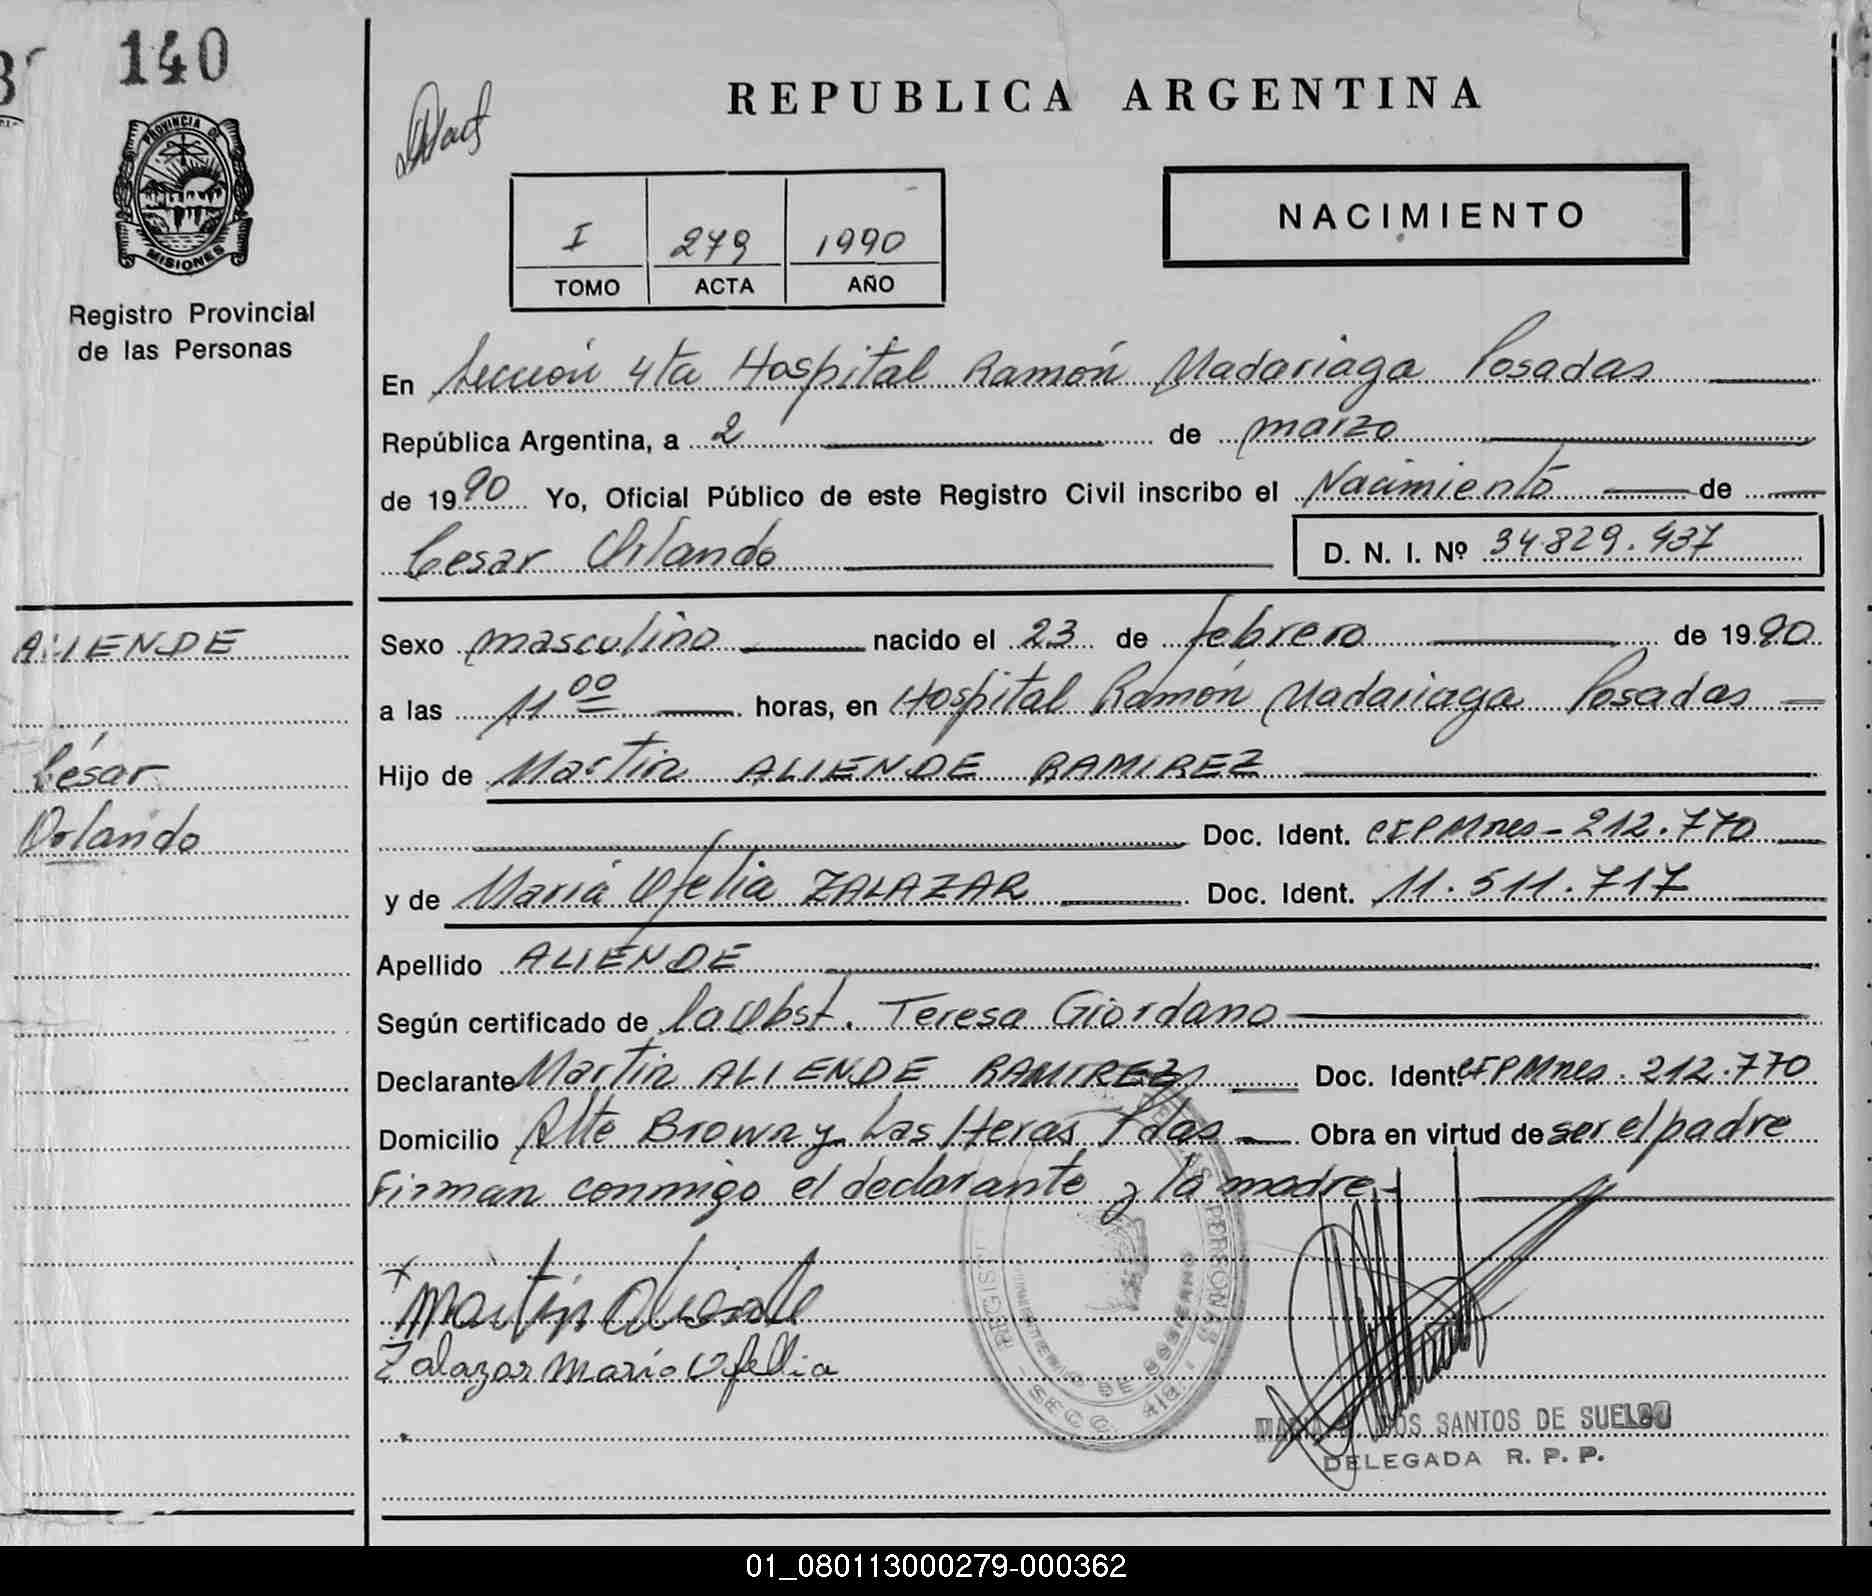 140
PROVINCIA DE
MISIONES
Registro Provincial
de las Personas
ALIENDE
César
Orlando
REPUBLICA ARGENTINA
NACIMIENTO
I 279 1990
TOMO ACTA AÑO
En Sección 4ta Hospital Ramón Madariaga Posadas
República Argentina, a 2 de marzo
de 1990 Yo, Oficial Público de este Registro Civil inscribo el Nacimiento de
Cesar Orlando D. N. I. Nº 34.829.437
Sexo masculino nacido el 23 de febrero de 1990
a las 11 00 horas, en Hospital Ramón Madariaga Posadas
Hijo de Martin ALIENDE RAMIREZ
Doc. Ident. CIPMnes - 212.770
y de María Ofelia ZALAZAR Doc. Ident. 11.511.717
Apellido ALIENDE
Según certificado de la Obst. Teresa Giordano
Declarante Martin ALIENDE RAMIREZ Doc. Ident. CIPMnes. 212.770
Domicilio Alte Brown y Las Heras Pdas Obra en virtud de ser el padre
Firman conmigo el declarante y la madre
Martin Aliende
Zalazar Maria Ofellia
DOS SANTOS DE SUELDO
DELEGADA R. P. P.
01_080113000279-000362